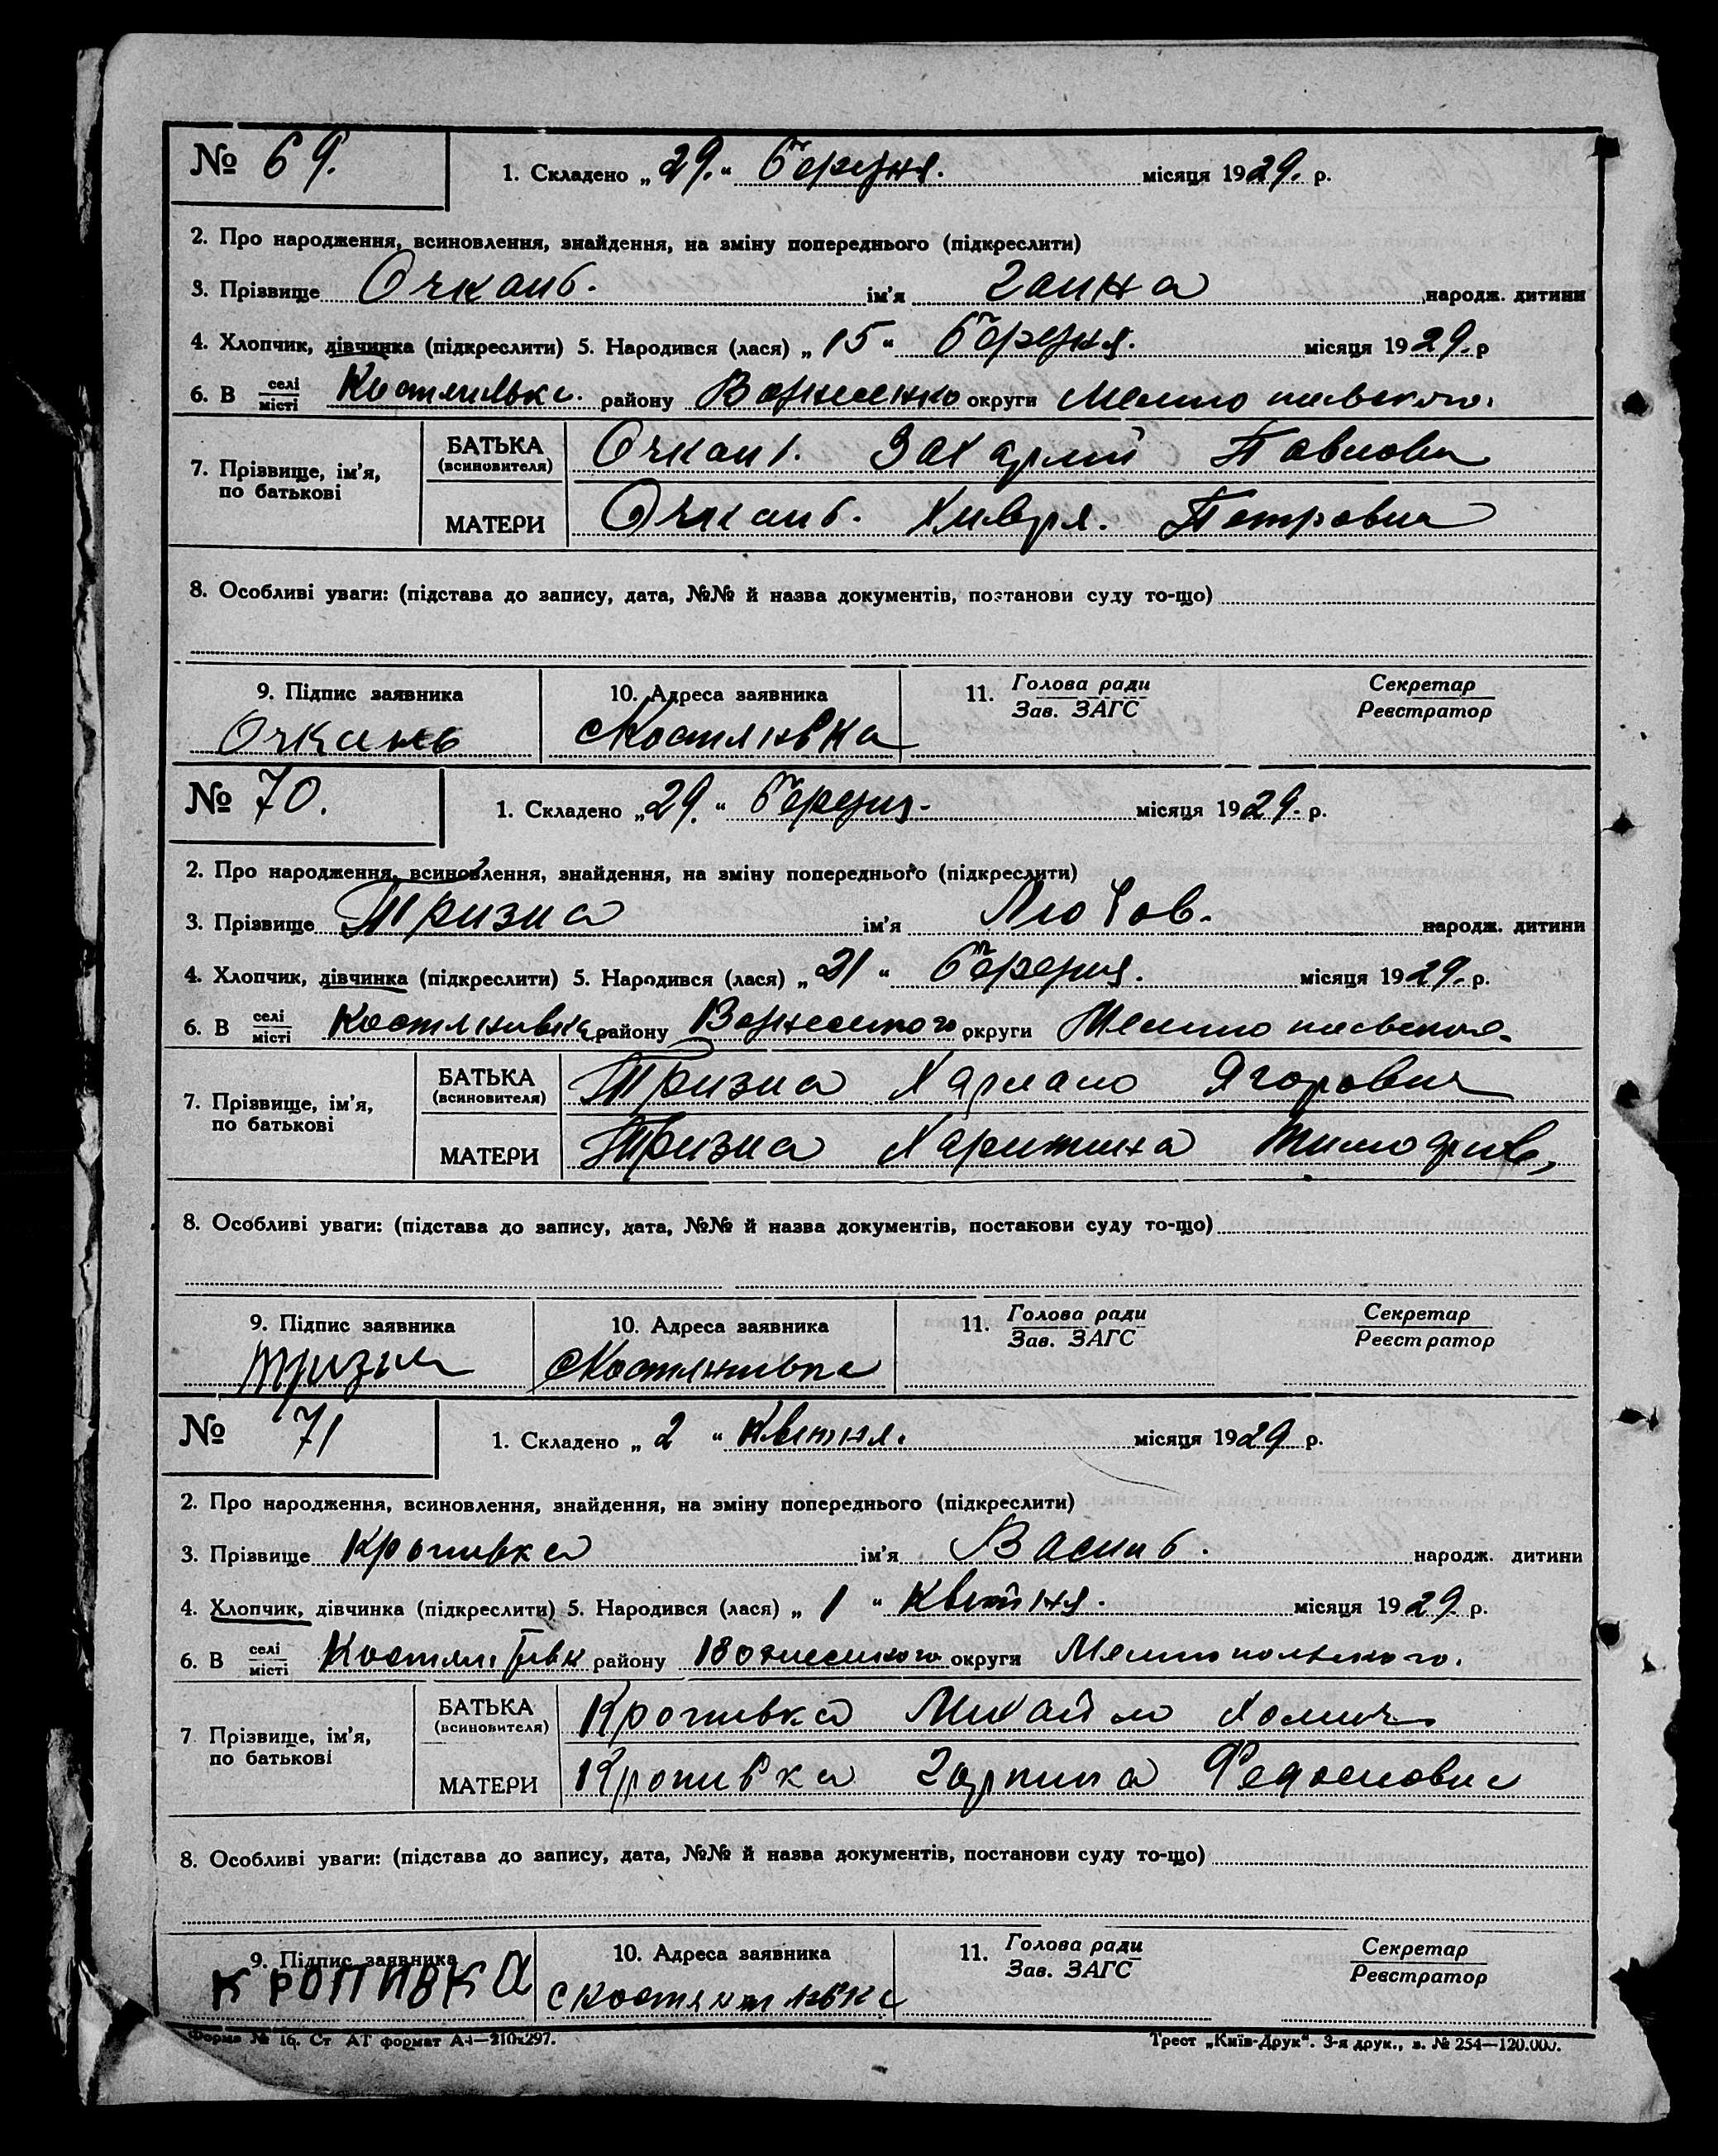 № 69.
1. Складено „29.“ березня. місяця 1929. р.
2. Про народження, всиновлення, знайдення, на зміну попереднього (підкреслити)
3. Прізвище Очкань. ім'я Ганна народж. дитини
4. Хлопчик, дівчинка (підкреслити) 5. Народився (лася) „15“ березня. місяця 1929. р
6. В селі місті району округи
7. Прізвище, ім'я, по батькові
БАТЬКА (всиновителя) Очкань. Захарий Павлови
МАТЕРИ Очкань. Хивря. Петровна
8. Особливі уваги: (підстава до запису, дата, №№ й назва документів, постанови суду то-що)
9. Підпис заявника 10. Адреса заявника 11. Голова ради Секретар
Зав. ЗАГС Реєстратор
Очкань
№ 70.
1. Складено „29.“ березня. місяця 1929. р.
2. Про народження, всиновлення, знайдення, на зміну попереднього (підкреслити)
3. Прізвище Тризна ім'я Любов. народж. дитини
4. Хлопчик, дівчинка (підкреслити) 5. Народився (лася) „21“ березня. місяця 1929. р.
6. В селі місті району округи
7. Прізвище, ім'я, по батькові
БАТЬКА (всиновителя) Тризна Ягорович
МАТЕРИ Тризна Харитина
8. Особливі уваги: (підстава до запису, дата, №№ й назва документів, постанови суду то-що)
9. Підпис заявника 10. Адреса заявника 11. Голова ради Секретар
Зав. ЗАГС Реєстратор
Тризна
№ 71
1. Складено „2“ квітня. місяця 1929 р.
2. Про народження, всиновлення, знайдення, на зміну попереднього (підкреслити)
3. Прізвище Кропивка ім'я Василь. народж. дитини
4. Хлопчик, дівчинка (підкреслити) 5. Народився (лася) „1“ квітня. місяця 1929. р.
6. В селі місті району округи
7 Прізвище, ім'я, по батькові
БАТЬКА (всиновителя) Кропивка Михайло Хомич
МАТЕРИ Кропивка Гарпина Федосиовна
8. Особливі уваги: (підстава до запису, дата, №№ й назва документів, постанови суду то-що)
9. Підпис заявника 10. Адреса заявника 11. Голова ради Секретар
Зав. ЗАГС Реєстратор
КРОПИВКА
Форма № 16. Ст АТ формат А4—210x297. Трест „Київ-Друк“. 3-я друк., з. № 254—120.000.